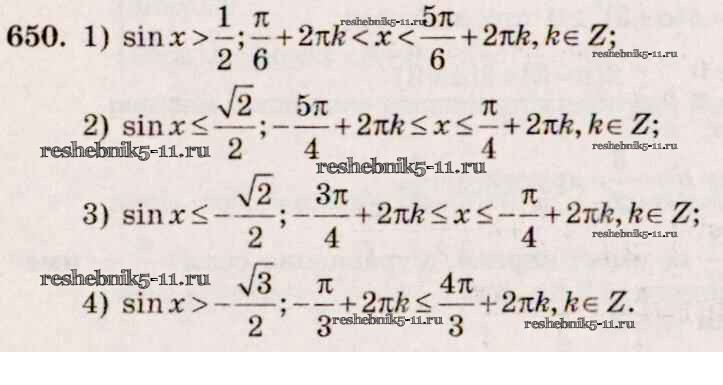 650. 1) sin x > 1/2; π/6 + 2πk < x < 5π/6 + 2πk, k ∈ Z;
reshebnik5-11.ru
reshebnik5-11.ru
2) sin x ≤ √2/2; -5π/4 + 2πk ≤ x ≤ π/4 + 2πk, k ∈ Z;
reshebnik5-11.ru
reshebnik5-11.ru
reshebnik5-11.ru
3) sin x ≤ -√2/2; -3π/4 + 2πk ≤ x ≤ -π/4 + 2πk, k ∈ Z;
reshebnik5-11.ru
reshebnik5-11.ru
4) sin x > -√3/2; -π/3 + 2πk ≤ 4π/3 + 2πk, k ∈ Z.
reshebnik5-11.ru
reshebnik5-11.ru